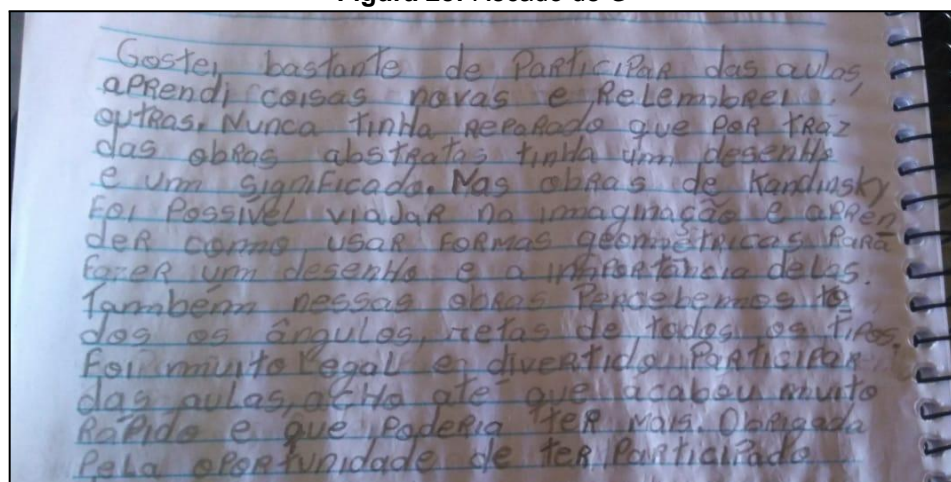 Gostei bastante de Participar das aulas,
aprendi coisas novas e Relembrei
outras. Nunca tinha reparado que por traz
das obras abstratas tinha um desenho
e um significado. Nas obras de Kandinsky
foi possível viajar na imaginação e apren
der como usar formas geométricas para
fazer um desenho e a importância delas.
Também nessas obras percebemos to
dos os ângulos, retas de todos os tipos.
Foi muito legal e divertido participar
das aulas, acho até que acabou muito
rápido e que poderia ter mais. Obrigada
pela oportunidade de ter participado